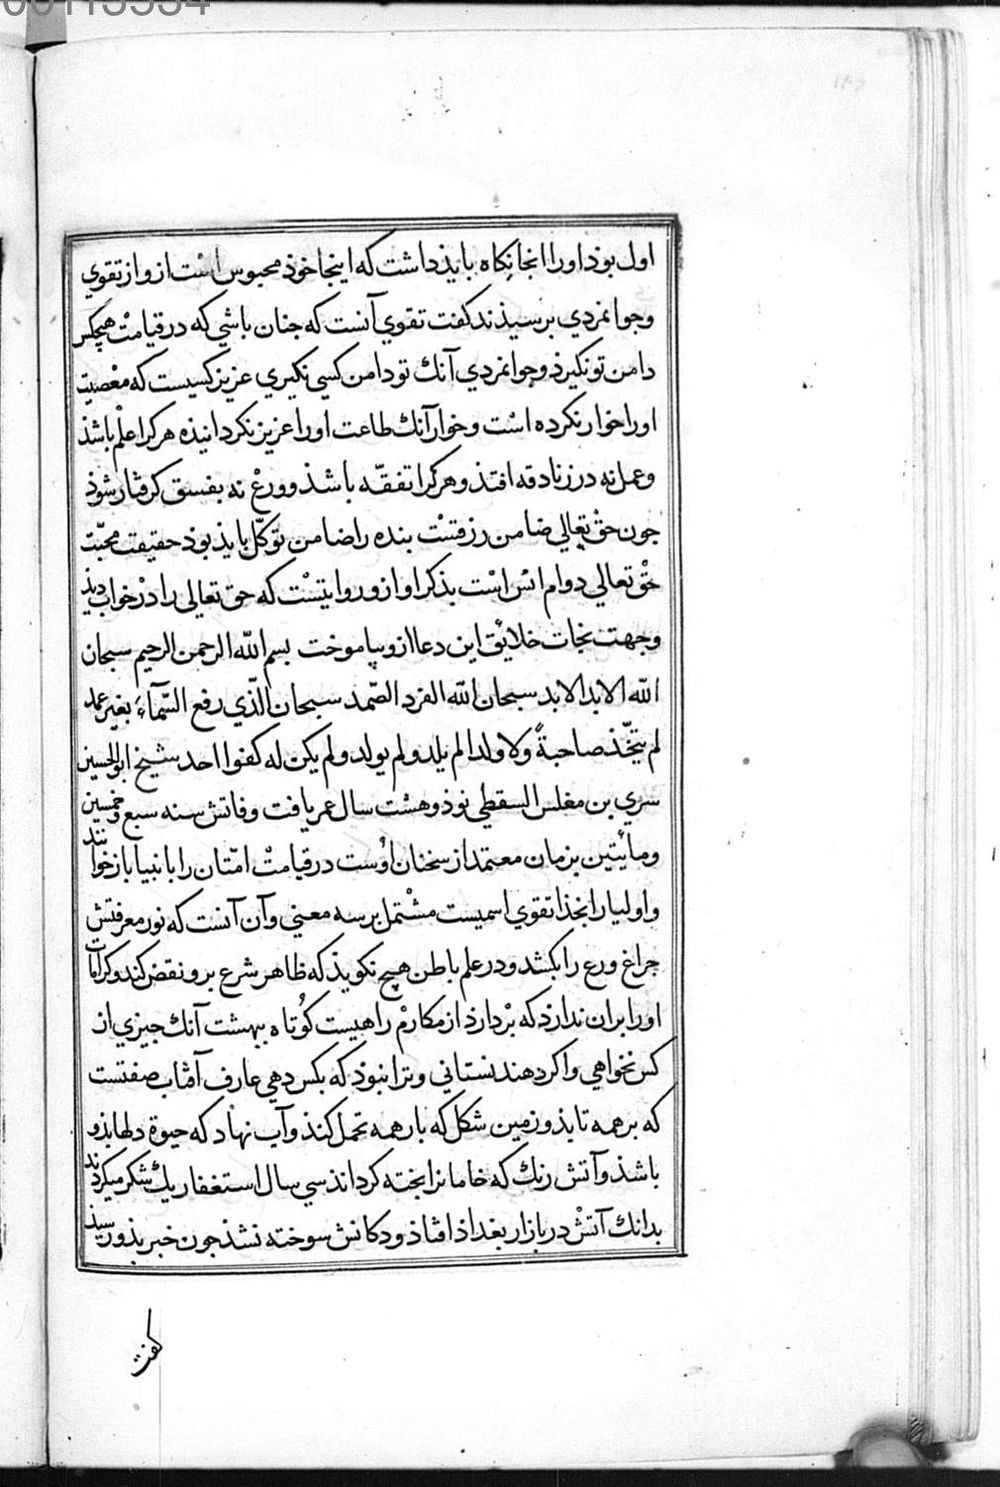 00113334
اول بوذ او را انجا نکاه بایذ داشت که اینجا خوذ محبوس است ازو از تقوی
وجوانمردی برسیذند کفت تقوی آنست که جنان باشی که در قیامت هیچکس
دامن تو نکیرذ وجوانمردی آنك تو دامن کسی نکیری عزیز کسیست که معصیت
اورا خوار نکرده است وخوار آنك طاعت اورا عزیز نکردانیذه هرکرا علم باشذ
وعمل نه در زنادقه افتذ وهرکرا تفقّه باشذ وورع نه بفسق کرفتار شوذ
جون حق تعالی ضامن رزقتست بنده را ضامن توکّل بایذ بوذ حقیقت محبّت
حق تعالی دوام انس است بذکر او ازو روایتست که حق تعالی را در خواب دیذ
وجهت نجات خلایق این دعا ازو بیاموخت بسم الله الرحمن الرحیم سبحان
الله الابد الابد سبحان الله الفرد الصّمد سبحان الّذی رفع السّمآء بغیر عمد
لم یتّخذ صاحبةً ولا ولدا لم یلد ولم یولد ولم یکن له کفوا احد شیخ ابوالحسین
سری بن مغلس السقطی نوذ وهشت سال عمر یافت وفاتش سنه سبع وخمسین
ومأیتین بزمان معتمد از سخنان اوست در قیامت امّتان را بانبیا باز خوانند
واولیا را بخذا تقوی اسمیست مشتمل برسه معنی وآن آنست که نور معرفتش
جراغ ورع را بکشد ودر علم باطن هیچ نکویذ که ظاهر شرع برو نقض کند وکرامات
اورا بران ندارذ که بردارذ از مکارم راهیست کوتاه ببهشت آنك جیزی از
کس نخواهی واکر دهند نستانی وترا نبوذ که بکس دهی عارف آفتاب صفتست
که بر همه تابذ وزمین شکل که بار همه تحمل کنذ وآب نهاد که حیوة دلها بذو
باشذ وآتش رنك که خامانرا بخته کرداند سی سال استغفار یك شکر میکردند
بدانك آتش در بازار بغداد افتاذ ودکانش سوخته نشذ جون خبر بذو رسیذ
کفت